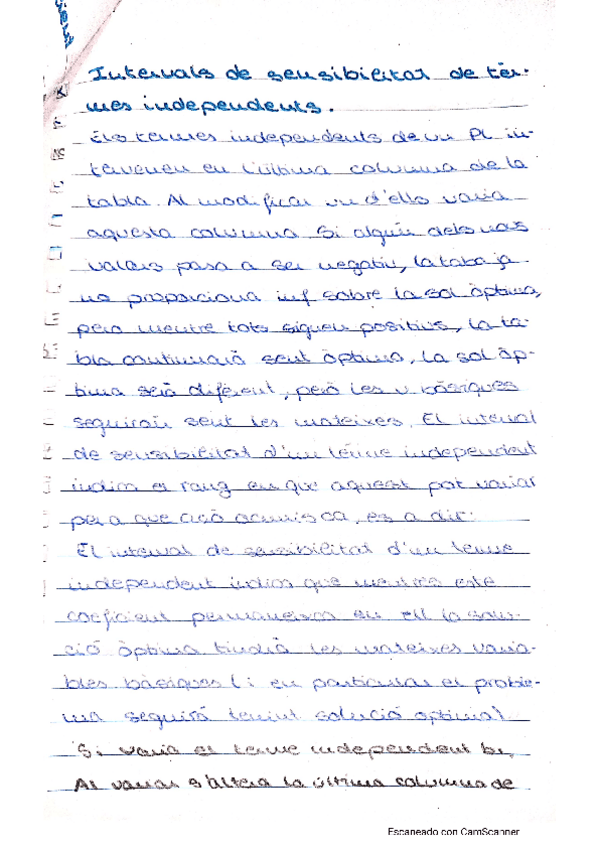 Intervals de sensibilitat de tèr-
mes independents.
Els termes independents de un PL in-
tervenen en l'última columna de la
tabla. Al modificar un d'ells varia
aquesta columna. Si algún dels nous
valors pasa a ser negatiu, la tabla ja
no proporciona inf sobre la sol òptima,
pero mentre tots siguen positius, la ta-
bla continuarà sent òptima, la sol òp-
tima serà diferent, però les v bàsiques
seguiran sent les mateixes. El interval
de sensibilitat d'un tèrme independent
indica el rang en que aquest pot variar
per a que açò ocurrisca, es a dir:
El interval de sensibilitat d'un terme
independent indica que mentres este
coeficient permaneixca en ell la solu-
ció òptima tindrà les mateixes varia-
bles bàsiques (i en particular el proble-
ma seguirà tenint solució optima)
Si varia el terme independent bi,
Al variar s'altera la última columna de
Escaneado con CamScanner